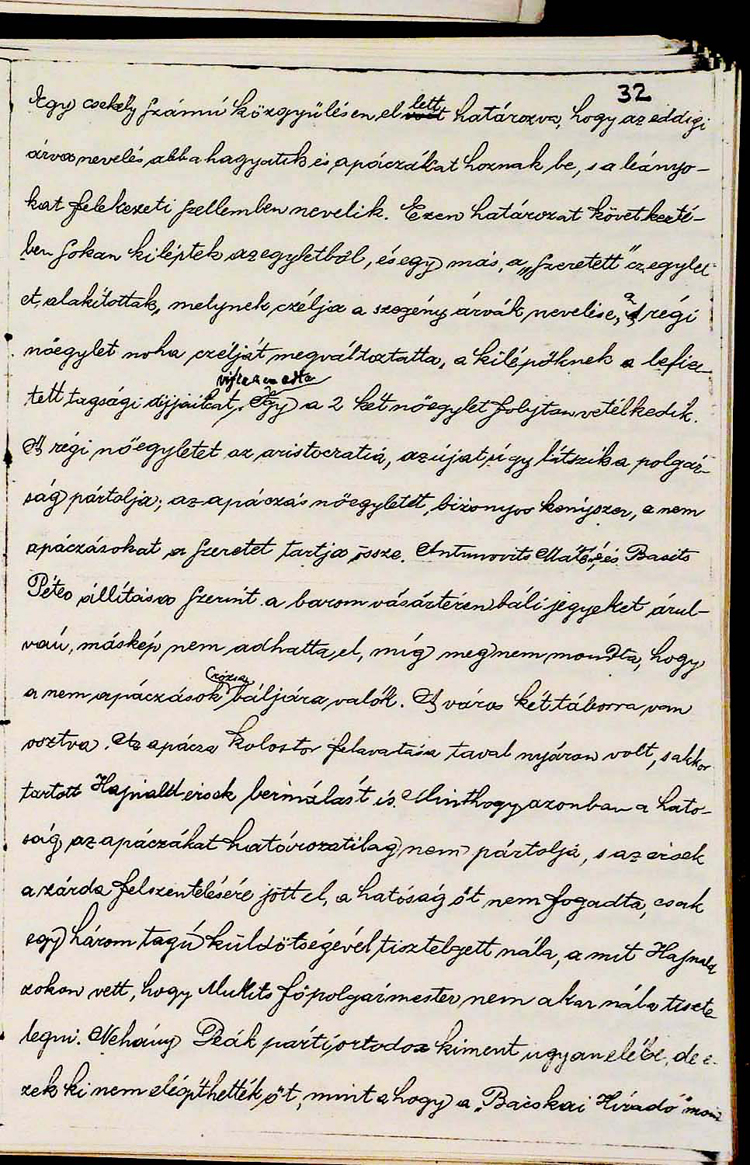 32
Egy csekély számú közgyülésen el lett határozva, hogy az eddigi
árva nevelés abba hagyatik és apáczákat hoznak be, s a leányo-
kat felekezeti szellemben nevelik. Ezen határozat következté-
ben sokan kiléptek az egyletből, és egy más, a „szeretett" cz. egylet
et, alakítottak, melynek czélja a szegény árvák nevelése, a régi
nőegylet noha czélját megváltoztatta, a kilépőknek a befize-
tett tagsági díjjaikat vissza nem adta. Így a 2 két nőegylet folytan vetélkedik.
A régi nőegyletet az aristocratia, az újat, úgy látszik a polgár-
ság pártolja; az apáczás nőegyletet, bizonyos kényszer, a nem
apáczásokat a szeretet tartja össze. Antunovits Máté, és Bacsits
Péter állítása szerint a barom vásártéren báli jegyeket árul-
ván, máskép nem adhatta el, míg meg nem mondta, hogy
a nem apáczások rózsa báljára valók. A város két táborra van
osztva. Az apácza kolostor felavatása taval nyáron volt, s akkor
tartott Hajnald érsek bérmálást is. Minthogy azonban a ható-
ság az apáczákat határozatilag nem pártolja, s az érsek
a zárda felszentelésére jött el, a hatóság őt nem fogadta, csak
egy három tagú küldötségével tisztelgett nála, a mit Hajnald
zokon vett, hogy Mukits főpolgármester nem akar nála tiszte
legni. Nehány Deák párti ortodox kiment ugyan elébe, de e-
zek ki nem elégíthették őt, mint a hogy a „Bácskai Híradó"